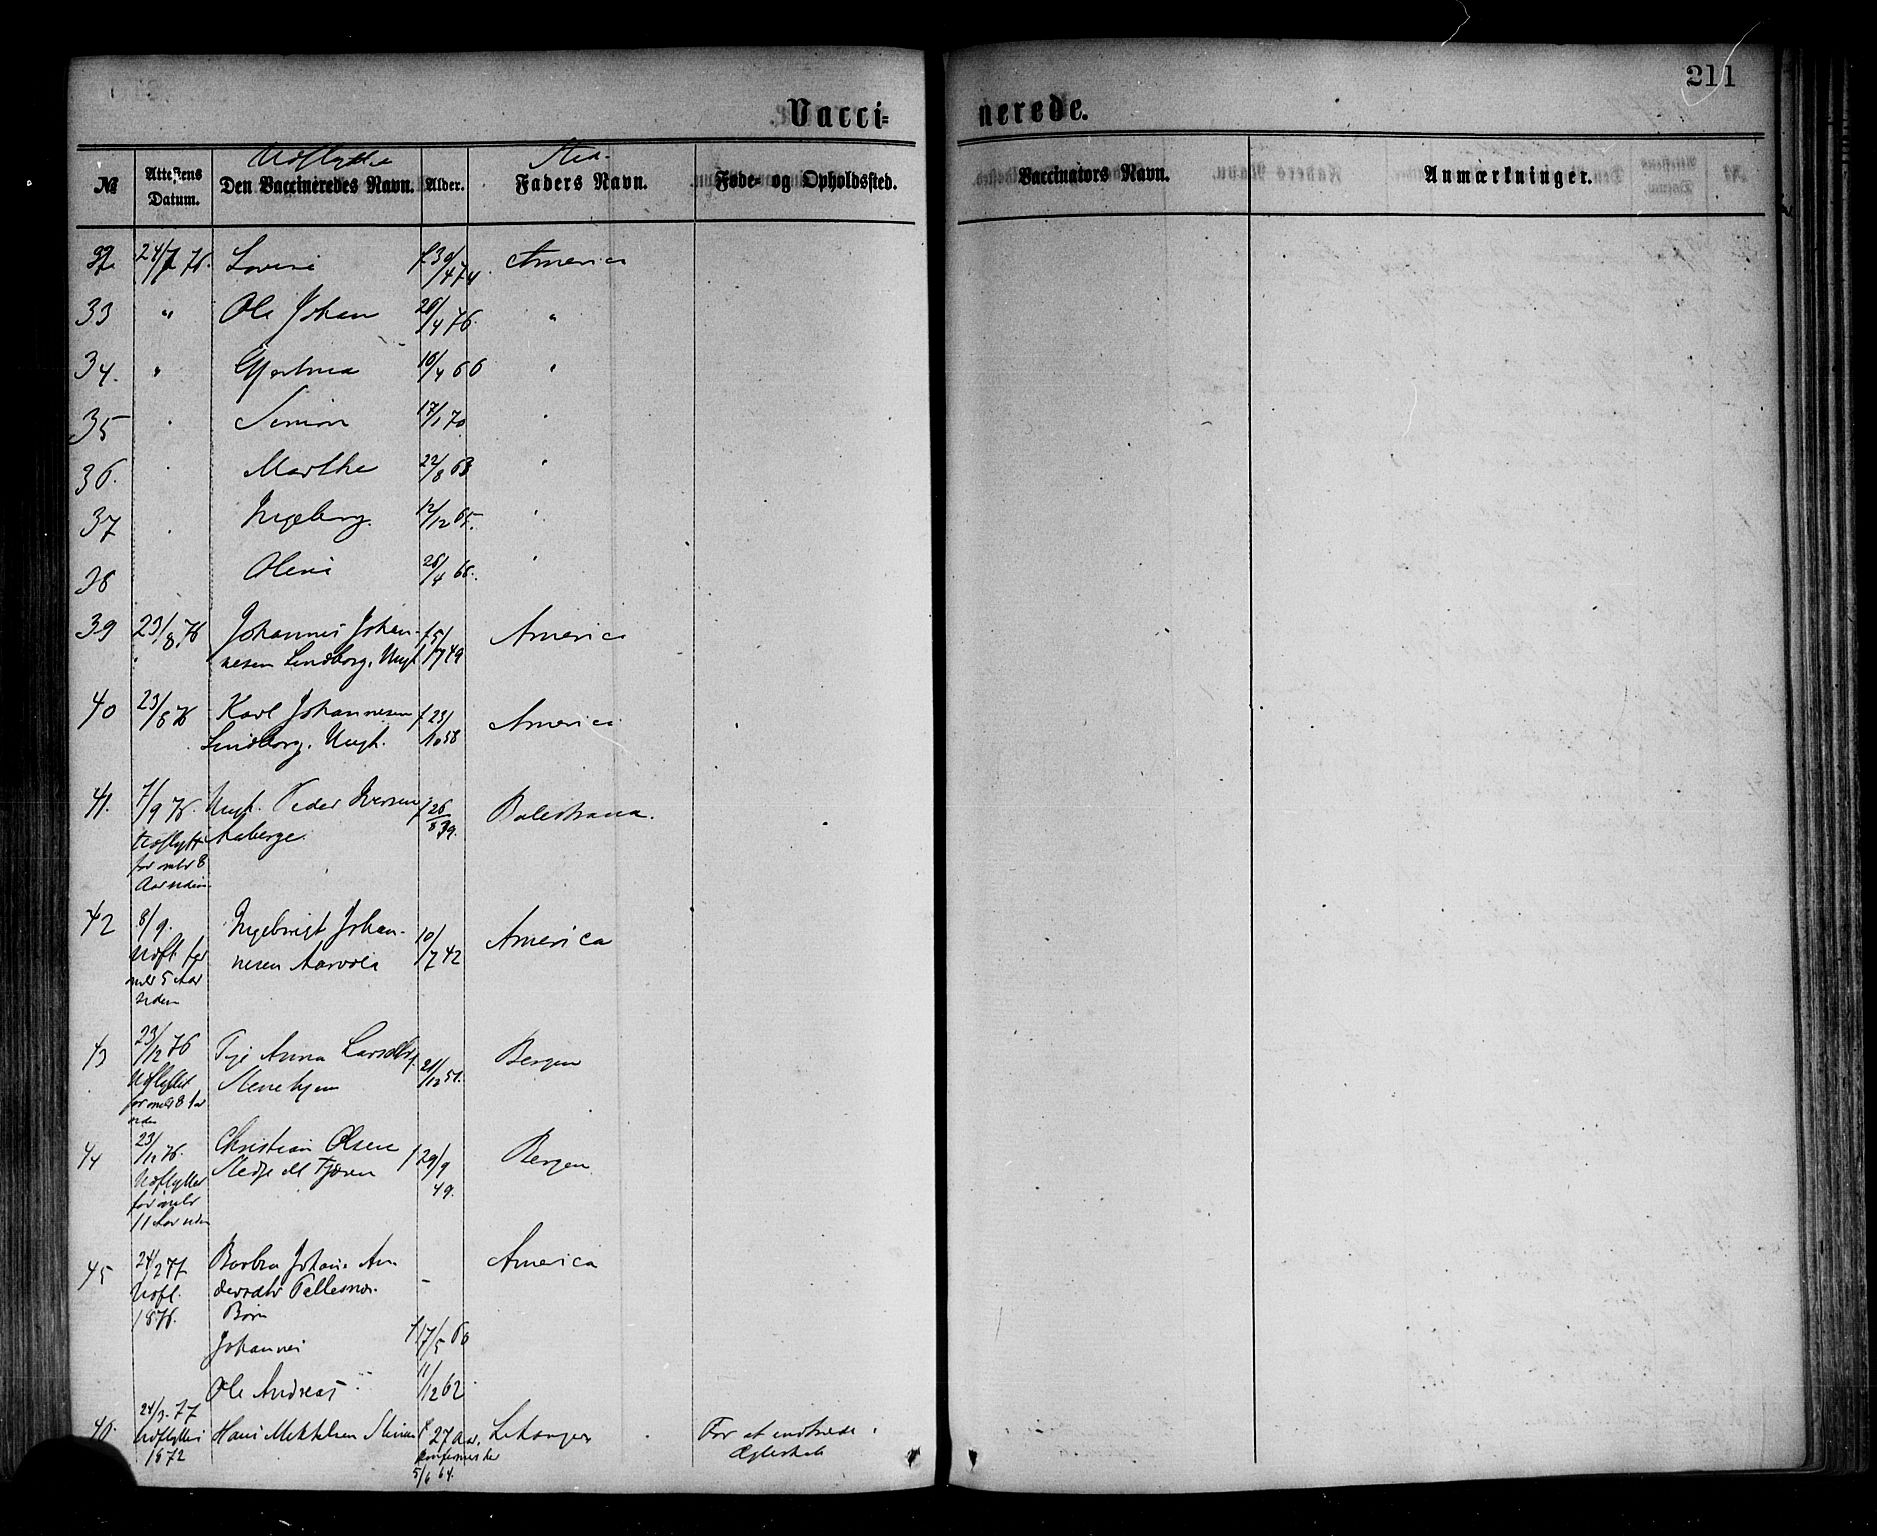 211
Vacci=
nerede.
Udflytte
Sted.
№
Attestens Datum.
Den Vaccineredes Navn.
Alder.
Faders Navn.
Føde- og Opholdssted.
Vaccinators Navn.
Anmærkninger.
32 24/7 76. Lovise f 30/4 74 America
33 " Ole Johan 28/4 76. "
34. " Gjertrua 10/4 66 "
35 " Simon 17/1 70 "
36. Marthe 22/8 63 "
37 Ingeborg. 12/12 65. "
38 Oline 28/4 68. "
39 23/8 76 Johannes Johan- f 5/7 49 America
nesen Lindborg, Ungk.
40 23/8 76 Karl Johannesen f 23/10 58 America
Lindborg, Ungk.
41. 7/9 76. Ungk. Peder Iversen f 26/8 39. Balestrand.
Udflytt Aaberge.
for omtr 8
Aar siden
42 8/9. Ingebrigt Johan- 10/7 42 America
Udfl. for nesen Aarvola
omtr 5 Aar
siden
43 23/12 76 Pige Anna Larsdtr f. 21/12 51. Bergen
Udflyttet Stenehjem
for omtr 8 Aar
siden
44 23/12 76. Christian Olsen f 29/9 49. Bergen
Udflyttet Stedje
for omtr
11 Aar siden
45 24/2 77 Barbra Johane An- America
Udfl. dersdatr -
1876. Børn
Johannes f 17/5 60
Ole Andreas 11/12 62
46. 24/3. 77 Hans Mikkelsen f 27 Aar. Lekanger For at indtræde i
Udflyttet konfirmeret Ægteskab
1872 5/6 64.